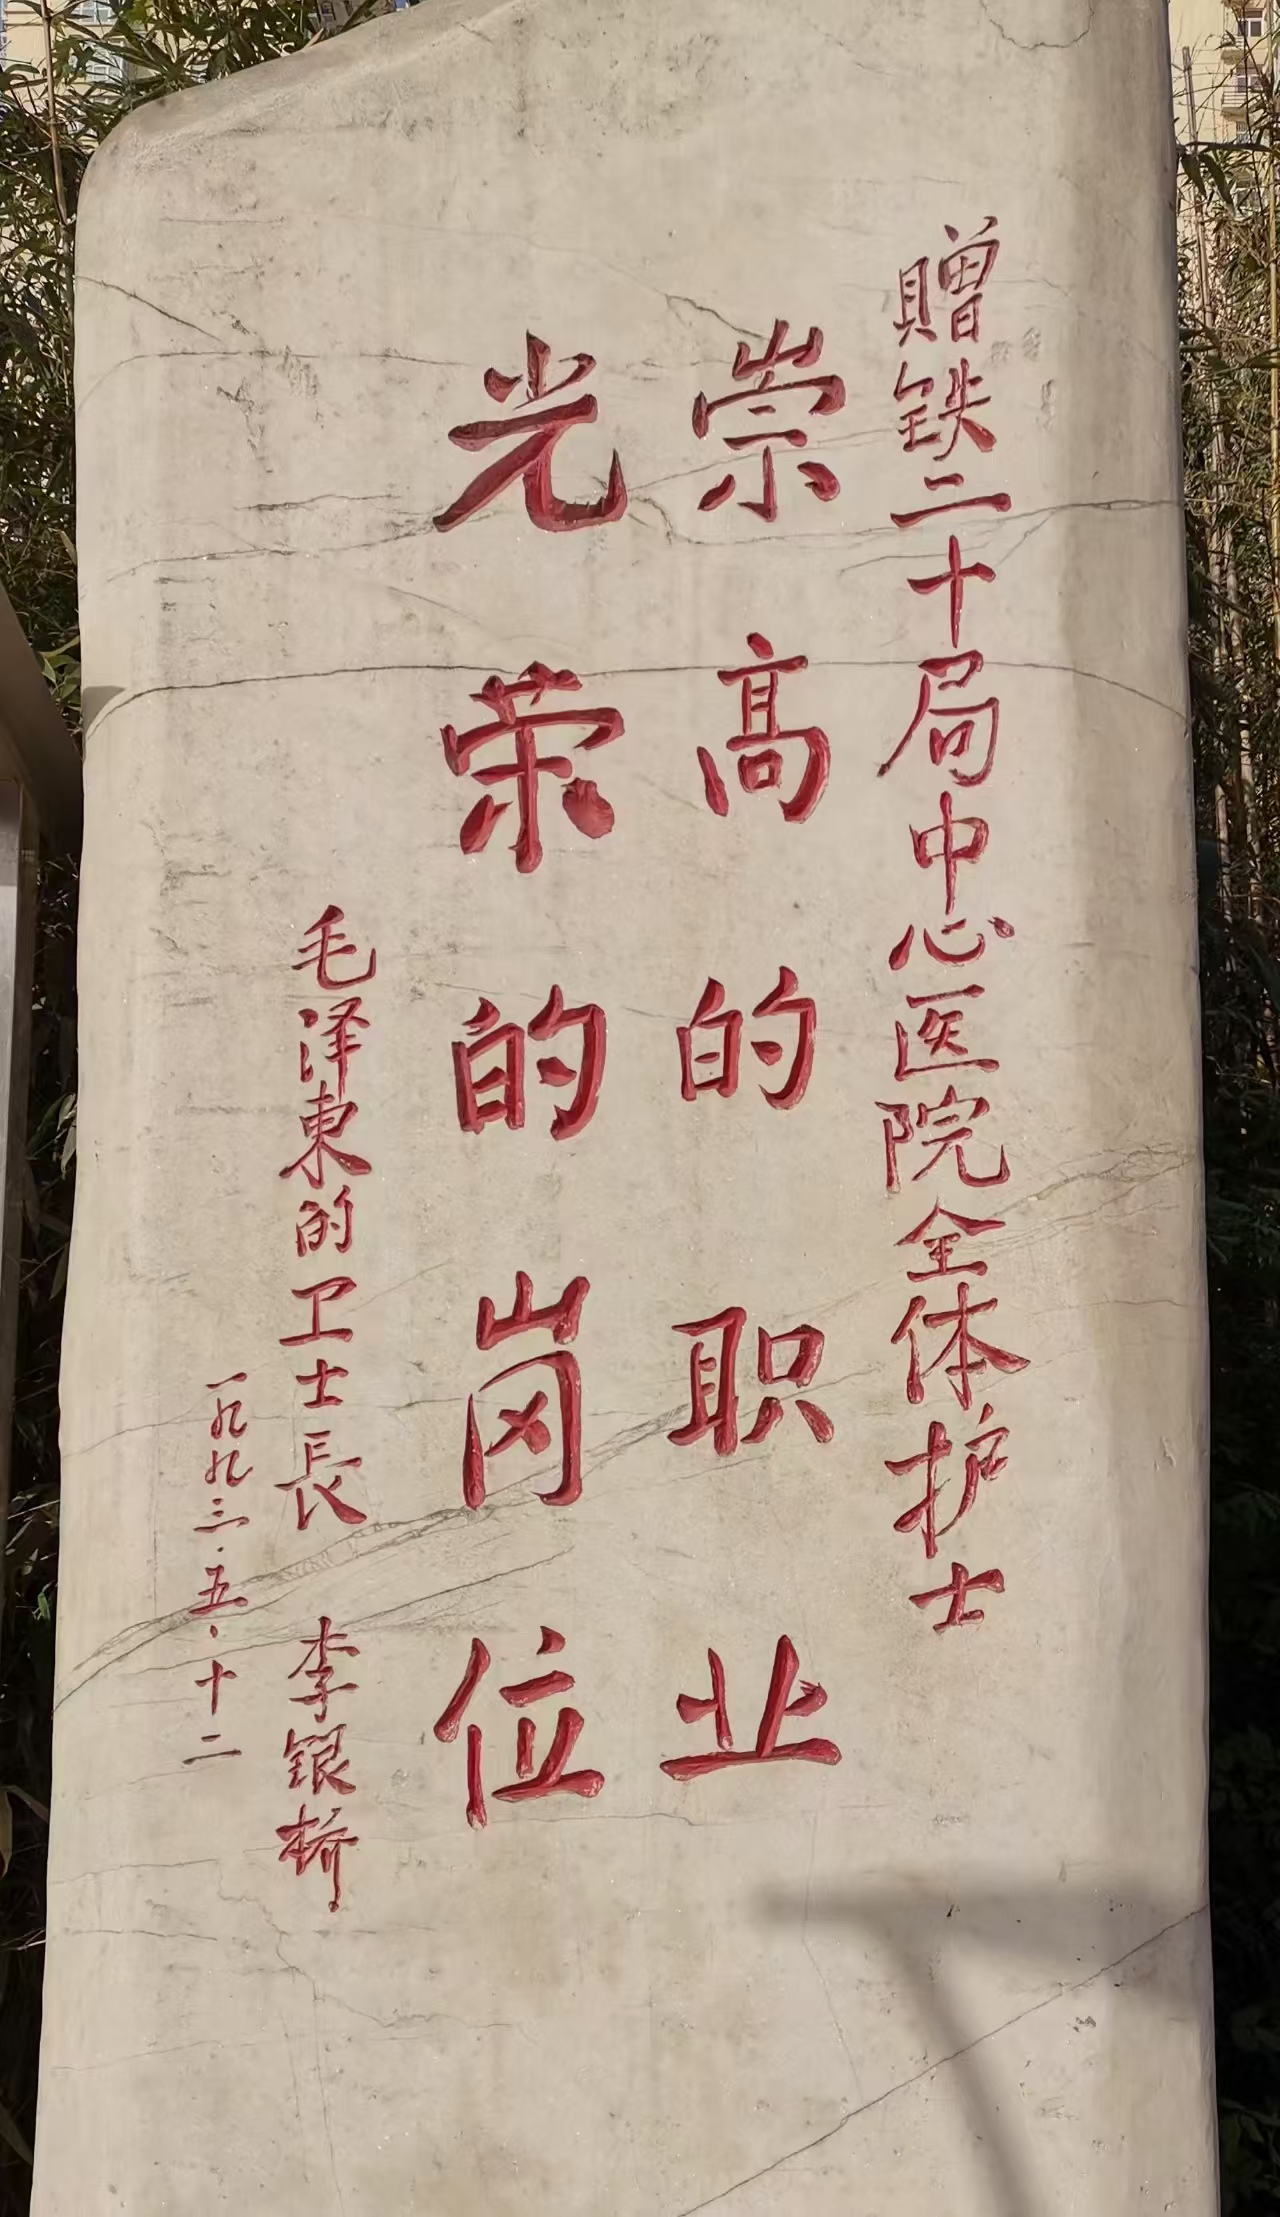 贈铁二十局中心医院全体护士
崇高的职业
光荣的岗位
毛泽東的卫士長 李银桥
一九九三·五·十二